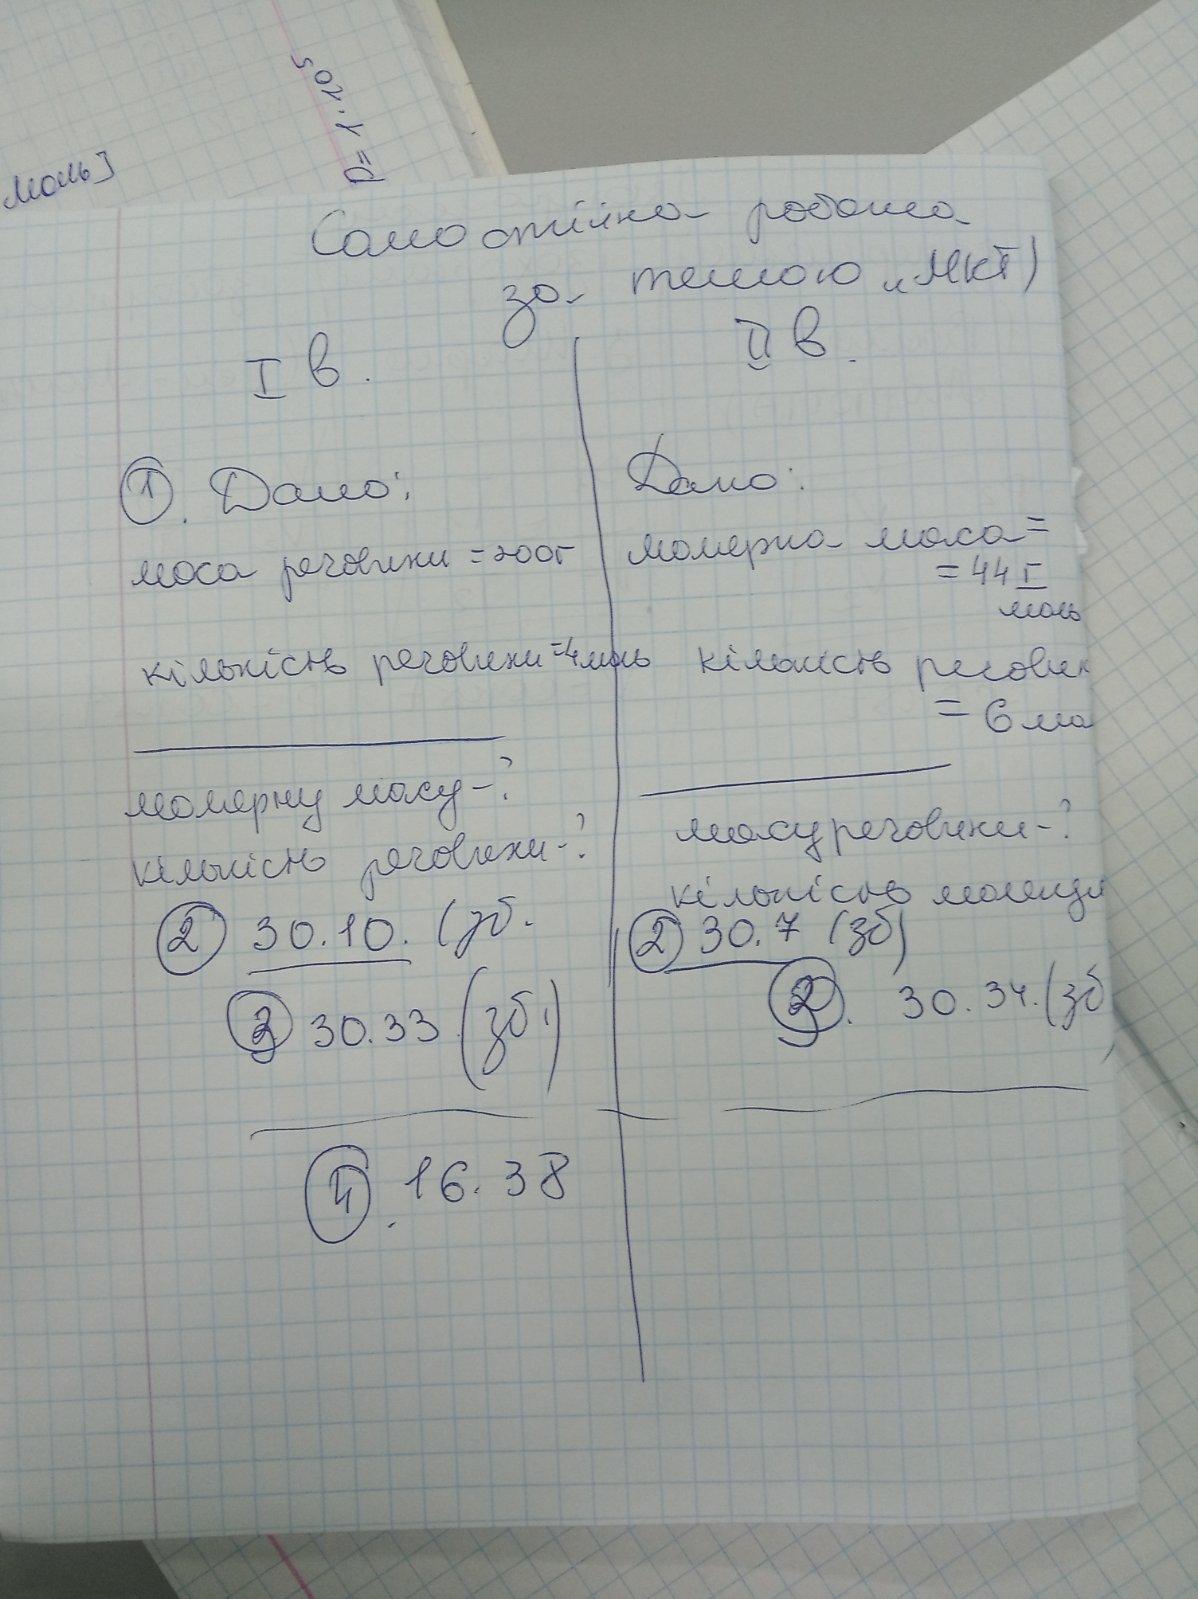 моль]
p= 1·10⁵
Самостійна робота
за темою „МКТ)
I в.
① . Дано:
маса речовини =200г
кількість речовини =4моль
молярну масу-?
кількість речовини-?
② 30.10. (зб.
③ 30.33 (зб.)
④. 16.38
II в.
Дано:
молярна маса=
= 44 г/моль
кількість речовин
= 6 мо
масу речовини-?
кількість молекул
② 30.7 (зб)
③. 30.34. (зб